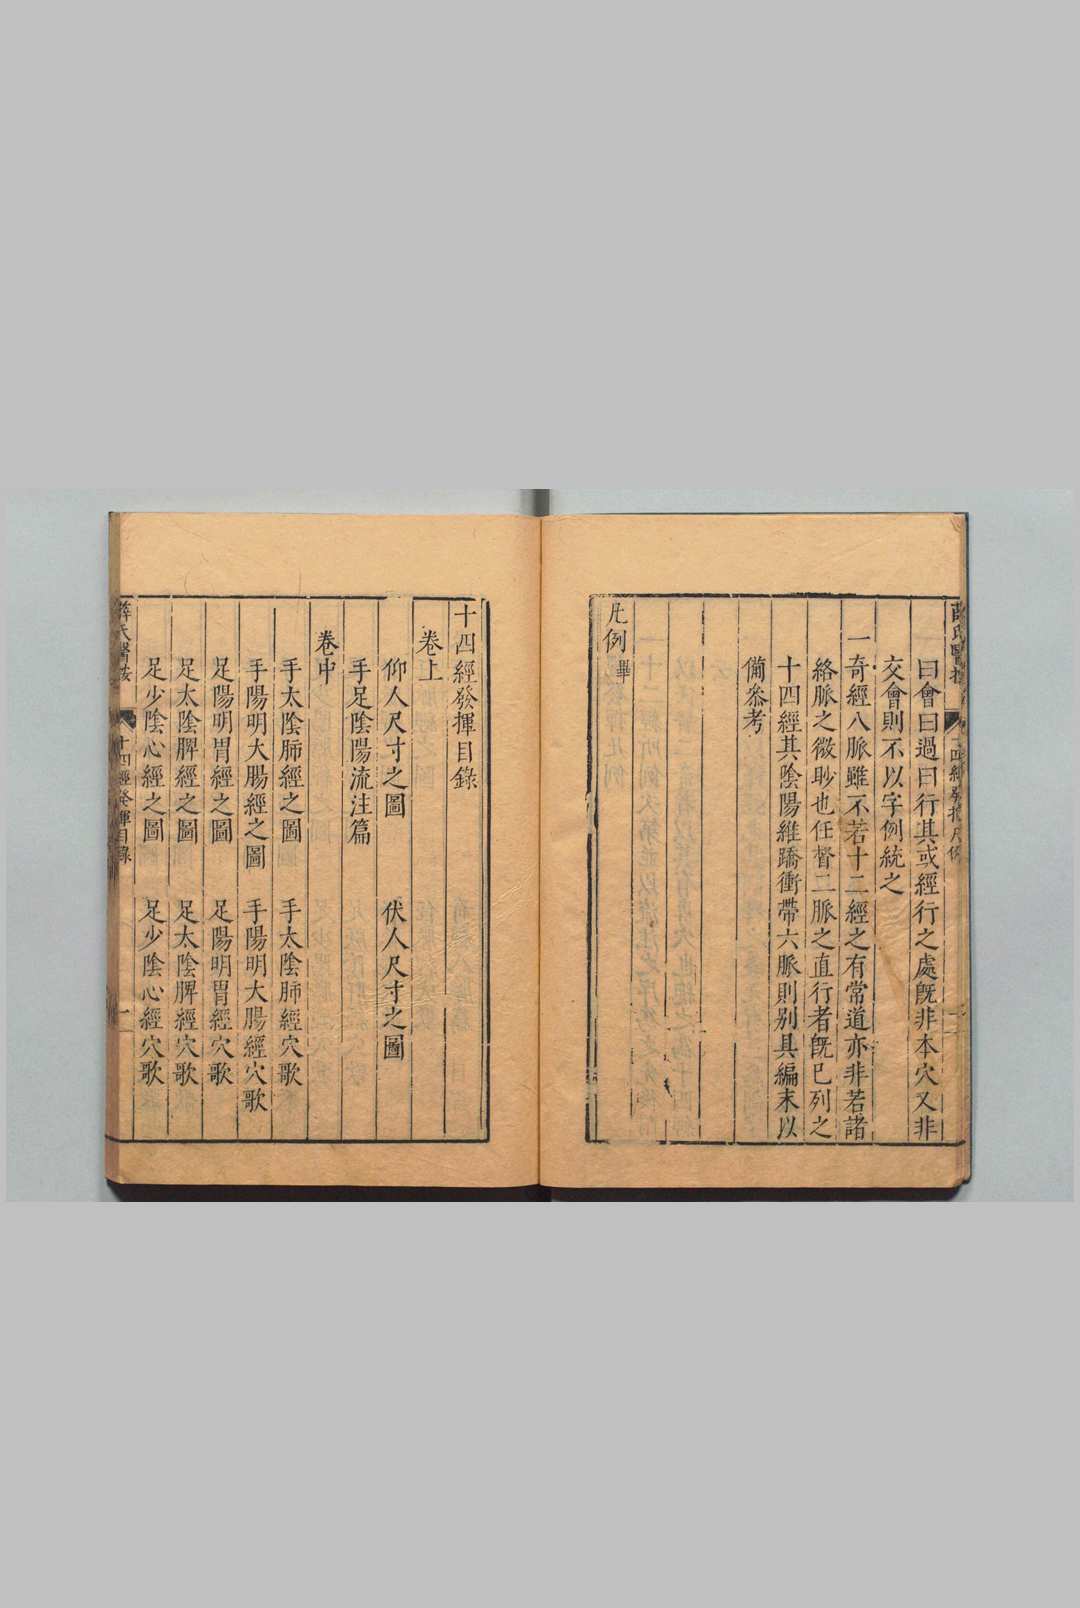 曰會曰過曰行其或經行之處旣非本穴又非
交會則不以字例統之
一奇經八脈雖不若十二經之有常道亦非若諸
絡脈之微眇也任督二脈之直行者旣已列之
十四經其陰陽維蹻衝帶六脈則别具編末以
備叅考
凡例畢
十四經發揮目錄
卷上
仰人尺寸之圖 伏人尺寸之圖
手足陰陽流注篇
卷中
手太陰肺經之圖 手太陰肺經穴歌
手陽明大腸經之圖 手陽明大腸經穴歌
足陽明胃經之圖 足陽明胃經穴歌
足太陰脾經之圖 足太陰脾經穴歌
足少陰心經之圖 足少陰心經穴歌
薛氏醫按 十四經發揮目錄 一